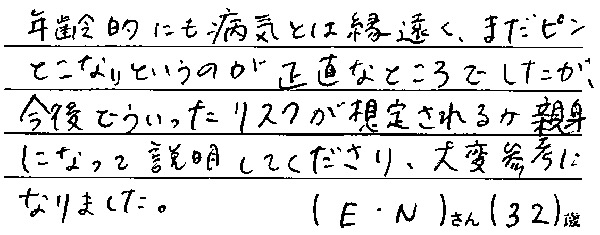 年齢的にも病気とは縁遠く、まだピン
とこないというのが正直なところでしたが、
今後どういったリスクが想定されるか親身
になって説明してくださり、大変参考に
なりました。 (E・N)さん(32)歳